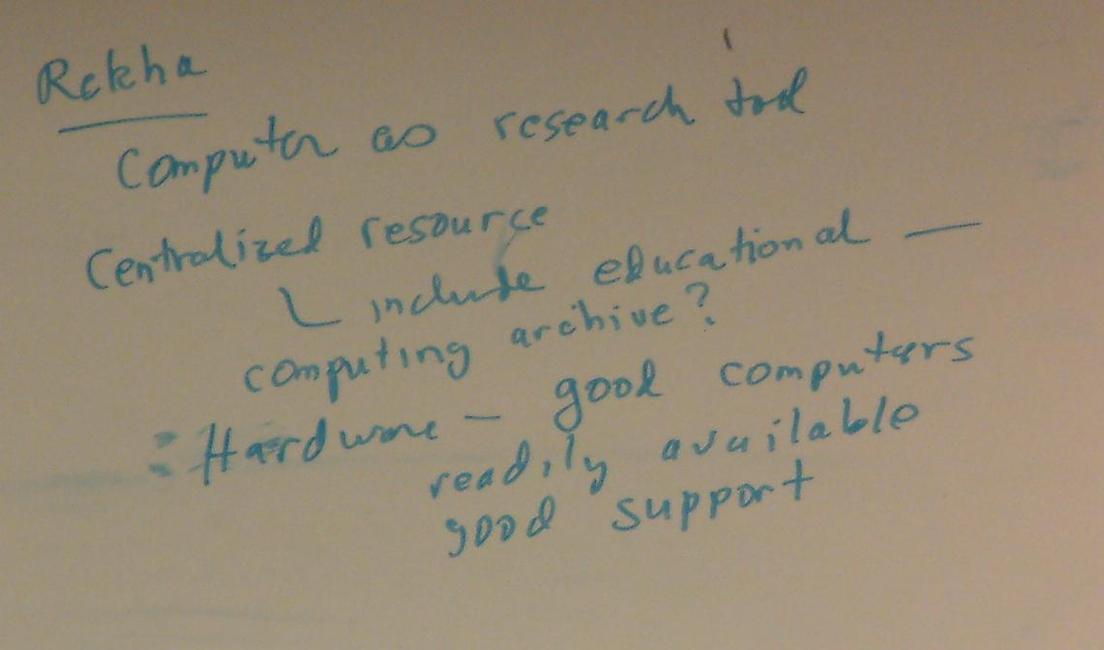 Rekha
Computer as research tool
Centralized resource
include educational —
computing archive?
: Hardware – good computers
readily available
good support